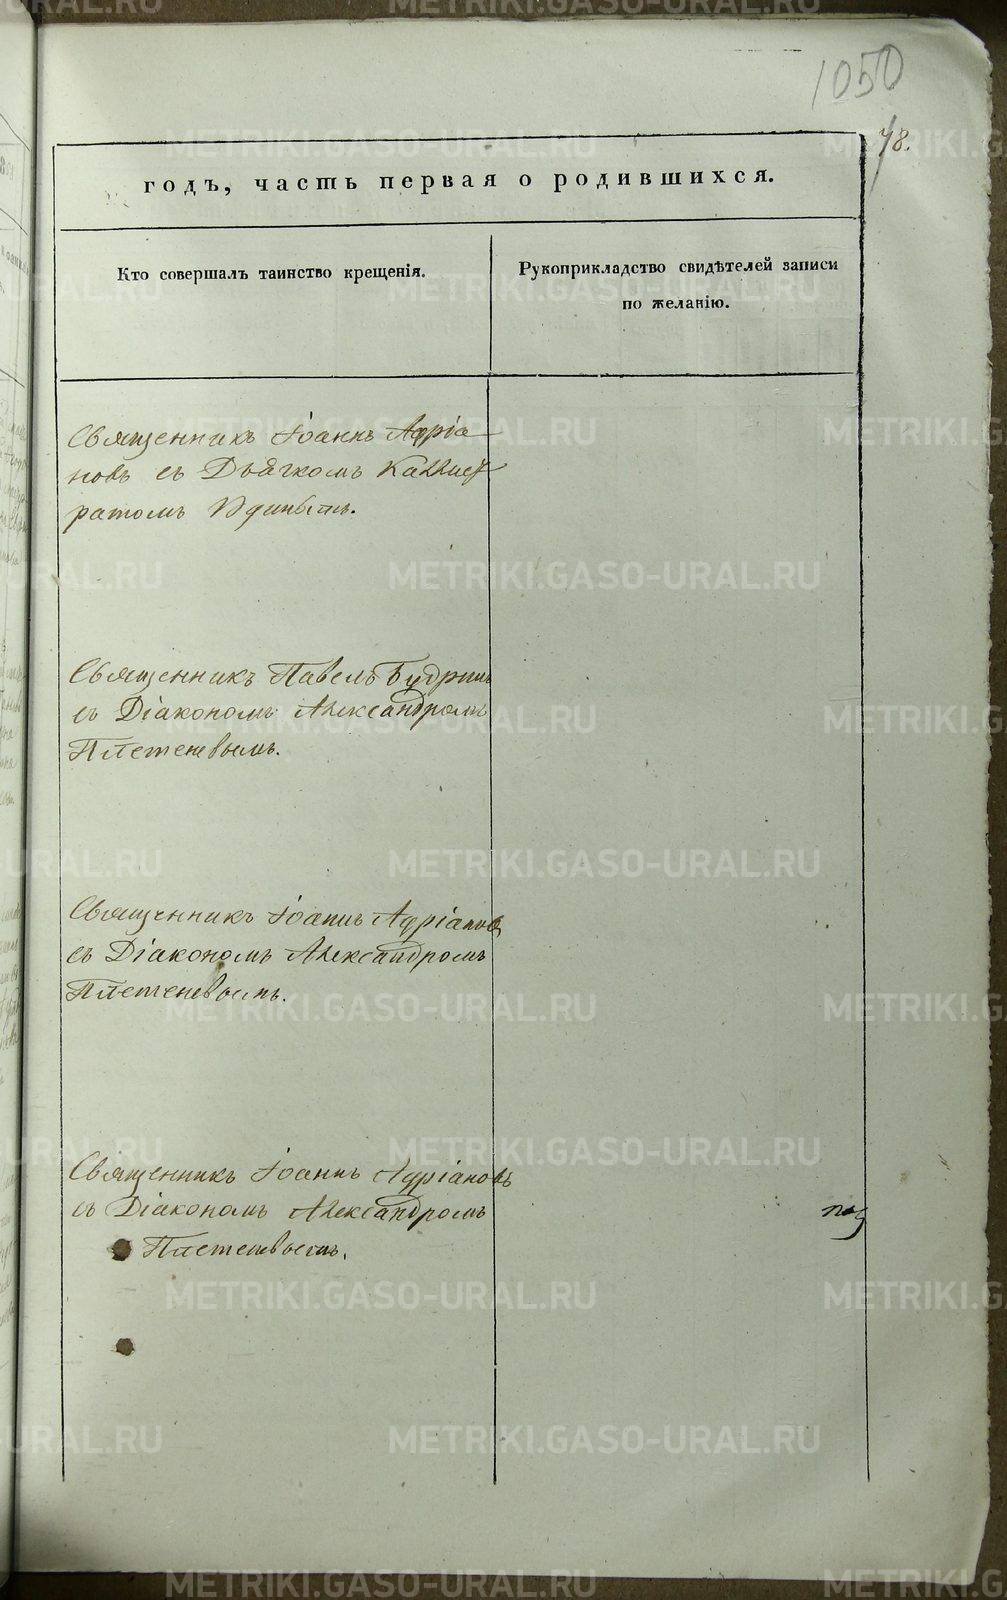 1050
78.
годъ, часть первая о родившихся.
Кто совершалъ таинство крещенія.
Рукоприкладство свидѣтелей записи
по желанію.
Священникъ Іоаннъ Адріа
новъ съ Дьячкомъ Каллист
ратомъ
Священникъ Павелъ Будринъ
съ Діакономъ Александромъ
Плетеневымъ.
Священникъ Іоаннъ Адріановъ
съ Діакономъ Александромъ
Плетеневымъ.
Священникъ Іоаннъ Адріановъ
съ Діакономъ Александромъ
Плетеневымъ.
METRIKI.GASO-URAL.RU